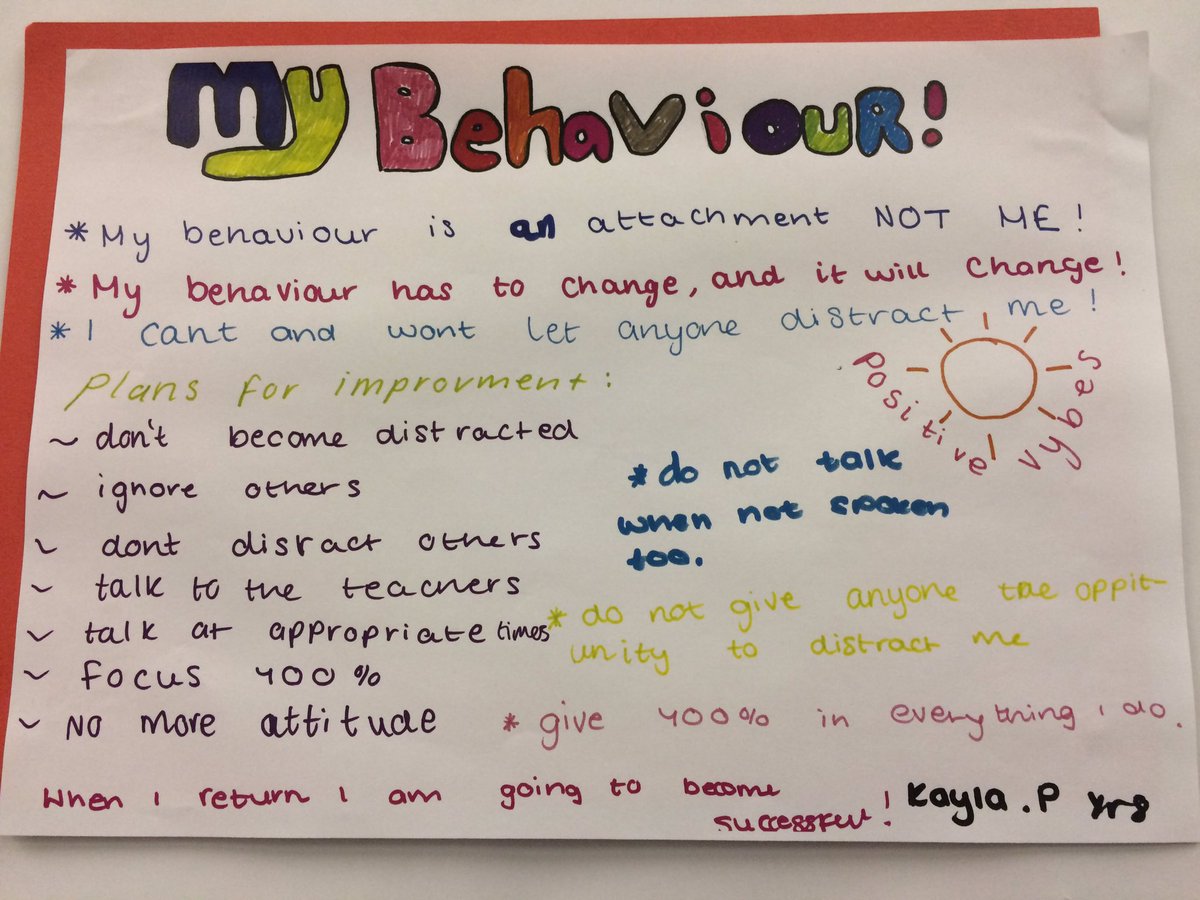 My Behaviour!
* My behaviour is an attachment NOT ME!
* My behaviour has to change, and it will change!
* I cant and wont let anyone distract me!
Plans for improvment:
positive vybes
~ don't become distracted
~ ignore others
~ dont disract others
~ talk to the teachers
~ talk at appropriate times
~ focus 400%
~ No more attitude
* do not talk
when not spoken
too.
* do not give anyone the oppit-
unity to distract me
* give 400% in everything i do.
When I return I am going to become
successful!
Kayla.P yr8